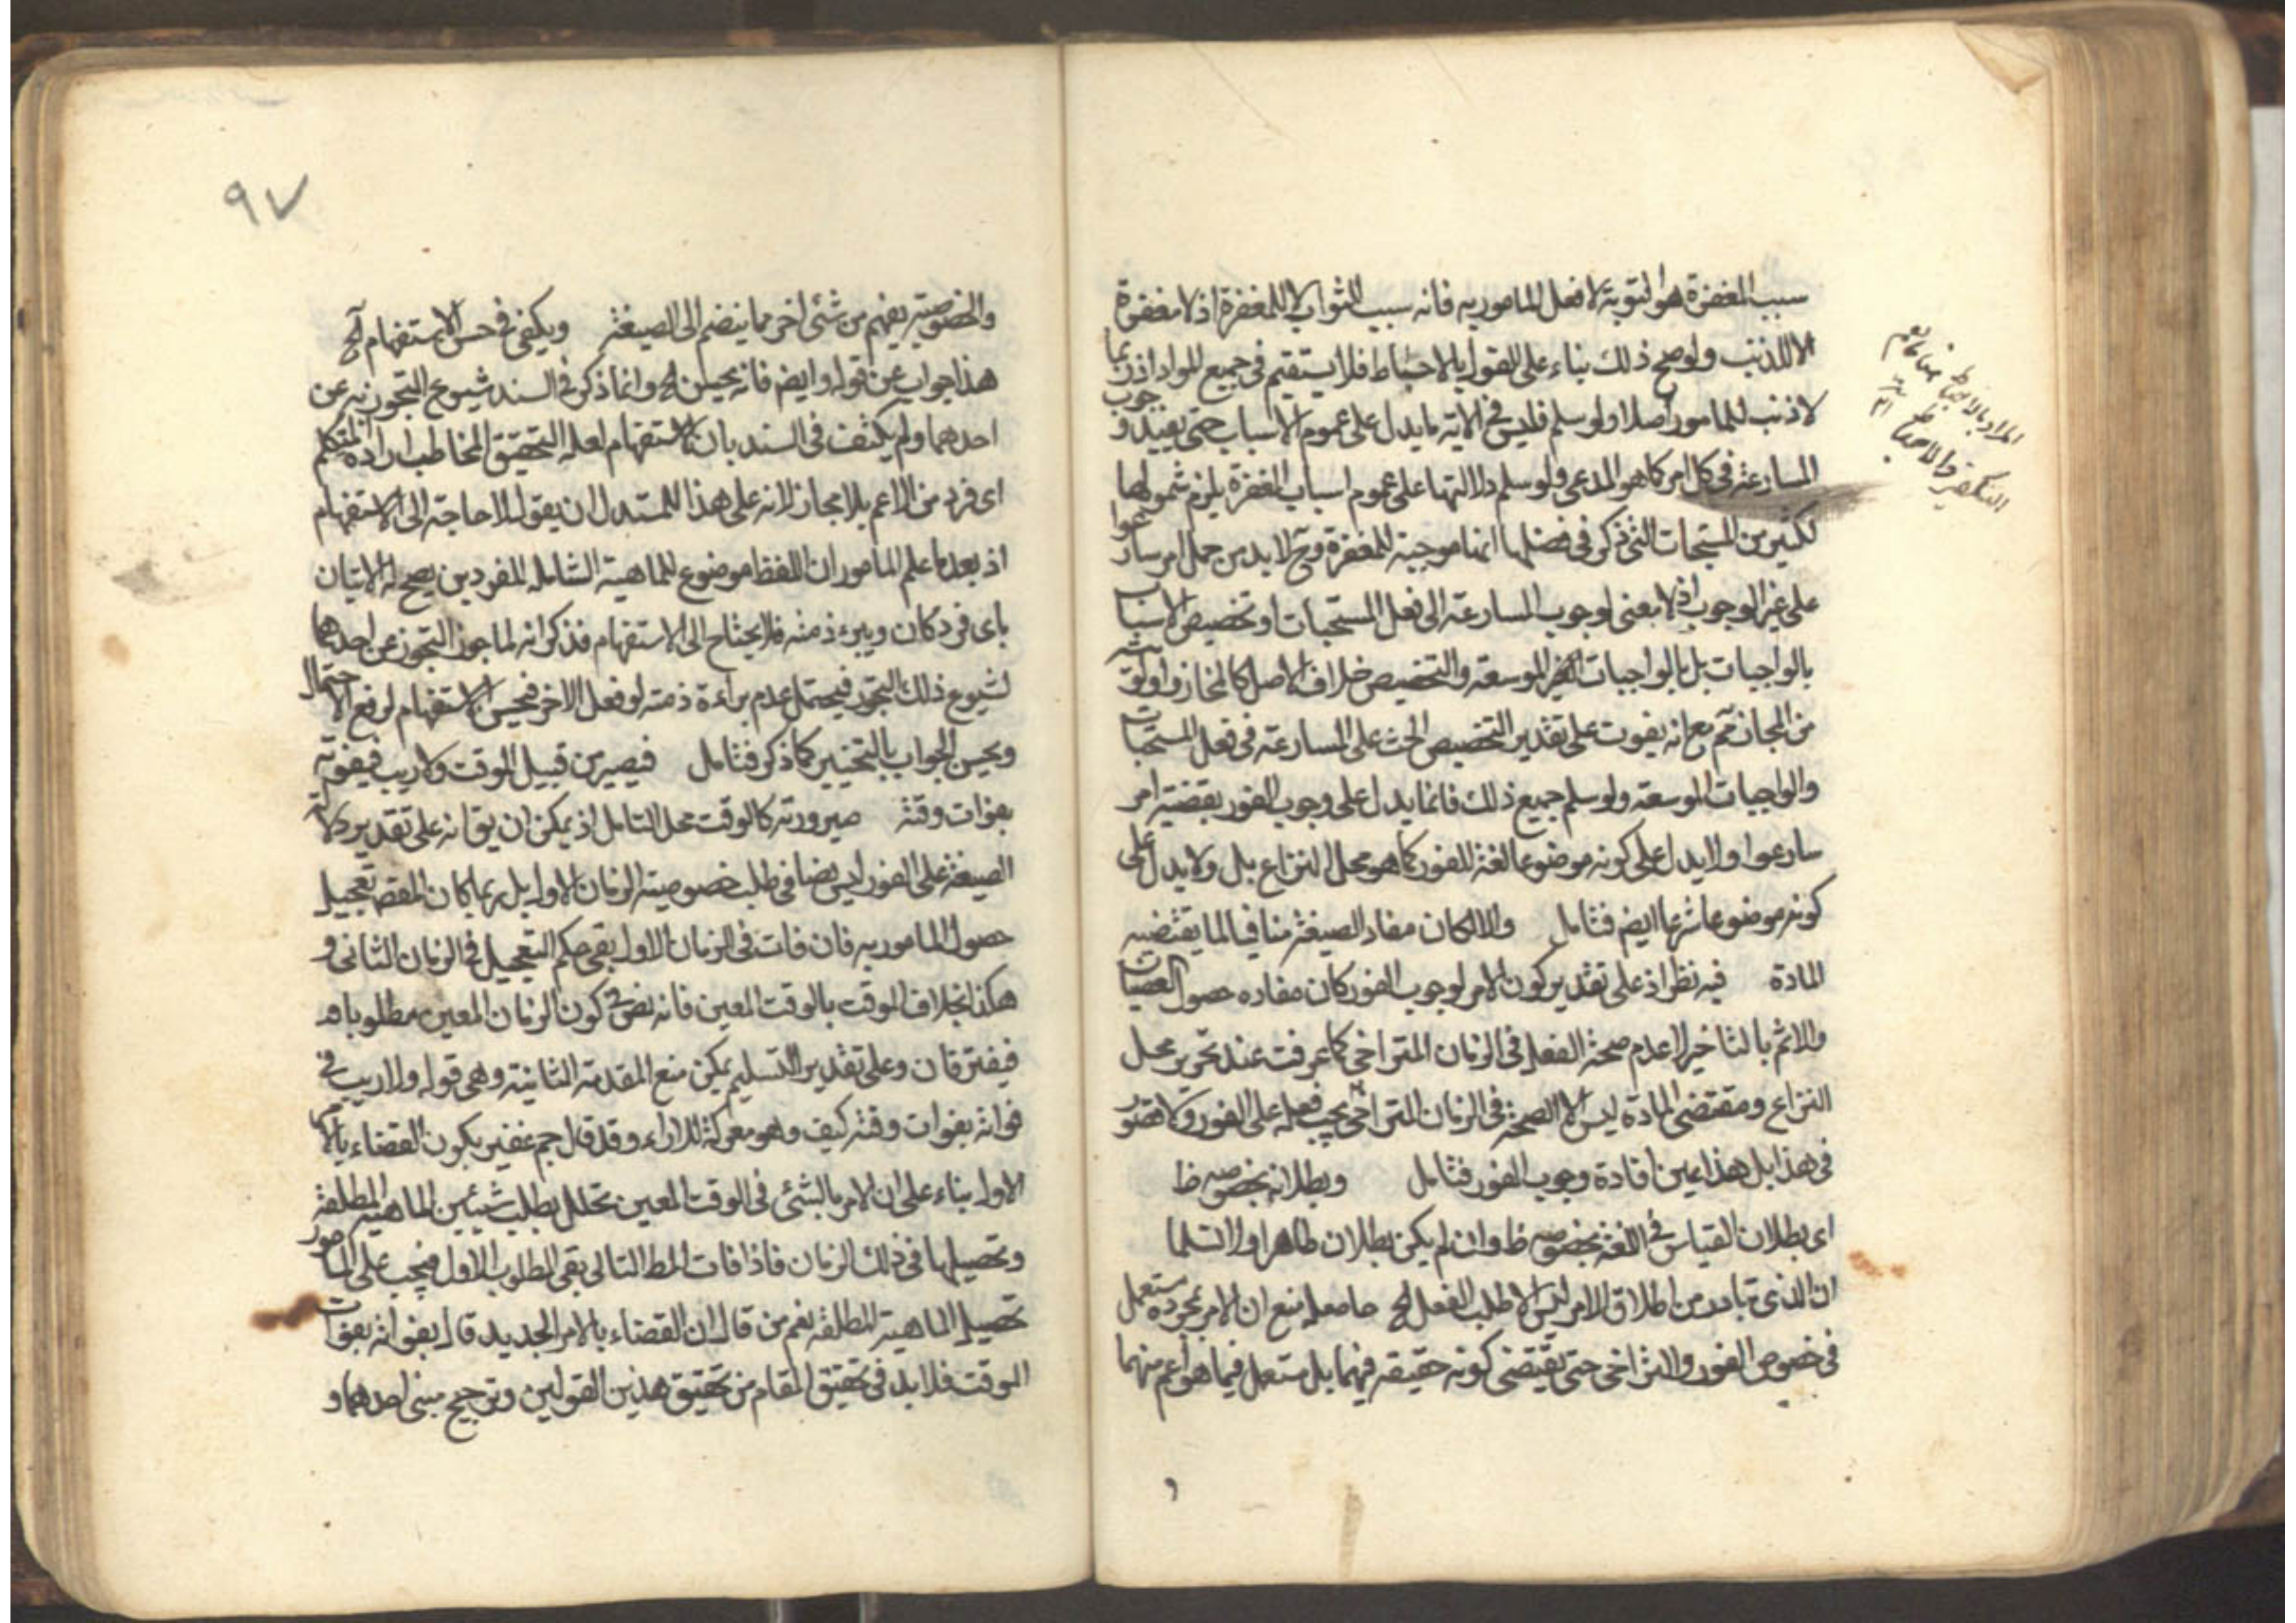 سبب المغفرة هو التوبة لا فعل المامور به فانه سبب للثواب لا للمغفرة اذ لا مغفرة
الا للذنب ولو صح ذلك بناء على القول بالاحباط فلا يستقيم في جميع المواد اذ ربما
لا ذنب للمامور اصلا ولو سلم فليس في الآية ما يدل على عموم الاسباب حتى يفيد وجوب
المسارعة في كل امر كما هو المدعى ولو سلم دلالتها على عموم اسباب المغفرة يلزم شمولها
لكثير من المستحبات التي ذكر في فضلها انها موجبة للمغفرة وح لا بد من حمل امر سارعوا
على غير الوجوب اذ لا معنى لوجوب المسارعة الى فعل المستحبات او تخصيص الاسباب
بالواجبات بل بالواجبات الغير الموسعة والتخصيص خلاف الاصل كالمجاز واولويته
من المجاز مم مع انه يفوت على تقدير التخصيص الحث على المسارعة في فعل المستحبات
والواجبات الموسعة ولو سلم جميع ذلك فانما يدل على وجوب الفور بقضية امر
سارعوا ولا يدل على كونه موضوعا لغة للفور كما هو محل النزاع بل ولا يدل على
كونه موضوعا شرعا ايضم فتامل والا لكان مفاد الصيغة منافيا لما يقتضيه
المادة فيه نظر اذ على تقدير كون الامر لوجوب الفور كان مفاده حصول العصيان
والاثم بالتاخير لا عدم صحة الفعل في الزمان المتراخي كما عرفت عند تحرير محل
النزاع ومقتضى المادة ليس الا الصحة في الزمان المتراخي يجب فعله على الفور ولا قصور
في هذا بل هذا عين افادة وجوب الفور فتامل وبطلانه بخصوصه ظ
اى بطلان القياس في اللغة بخصوصه ظ وان لم يكن بطلان ظاهرا والا لسلما
ان الذى تبادر من اطلاق الامر ليس الا طلب الفعل الخ حاصله منع ان الامر بمجرده يستعمل
في خصوص الفور والتراخى حتى يقتضى كونه حقيقه فيهما بل مستعمل فيما هو اعم منهما
المراد بالاحباط هنا
التكفير والاحباط
و
٩٧
والخصوصية يفهم من شئ اخر مما ينضم الى الصيغة ويكفى في حسن الاستفهام آلخ
هذا جواب عن قوله وايضم فانه يحسن الخ وانما ذكر في السند شيوع التجوز به عن
احدهما ولم يكتف في السند بان الاستفهام لعله لتحقيق المخاطب ارادة المتكلم
اى فرد من الاعم بلا مجاز لانه على هذا للمستدل ان يقول لا حاجة الى الاستفهام
اذ بعد ما علم المامور ان اللفظ موضوع للماهية الشاملة للفردين يصح له الاتيان
باى فرد كان ويبرء ذمته فلا يحتاج الى الاستفهام فذكر انه لما جوز التجوز عن احدهما
لشيوع ذلك التجوز فيحتمل عدم براءة ذمته لو فعل الاخر فيحسن الاستفهام لرفع الاحتمال
ويحسن الجواب بالتخيير كما ذكر فتامل فيصير من قبيل الموقت ولا ريب في فوته
بفوات وقته صيرورته كالموقت محل التامل اذ يمكن ان يق انه على تقدير دلالة
الصيغة على الفور ليس نصا في طلب خصوصية الزمان الاول بل ربما كان المقصم تعجيل
حصول المامور به فان فات في الزمان الاول بقى حكم التعجيل في الزمان الثانى و
هكذا بخلاف الموقت بالوقت المعين فانه نص في كون الزمان المعين مطلوبا
فيفترقان وعلى تقدير التسليم يمكن منع المقدمة الثانية وهى قوله ولا ريب في
فواته بفوات وقته كيف وهو معركة للاراء وقد قال جم غفير بكون القضاء بالامر
الاول بناء على ان الامر بالشئ في الوقت المعين تحلل بطلب شيئين الماهية المطلقة
وتحصيلها في ذلك الزمان فاذا فات المط التالى بقى المطلوب الاول فيجب على المامور
تحصيل الماهية المطلقة نعم من قال ان القضاء بالامر الجديد قال بفواته بفوات
الوقت فلا بد في تحقيق المقام من تحقيق هذين القولين وترجيح مبنى احدهما و